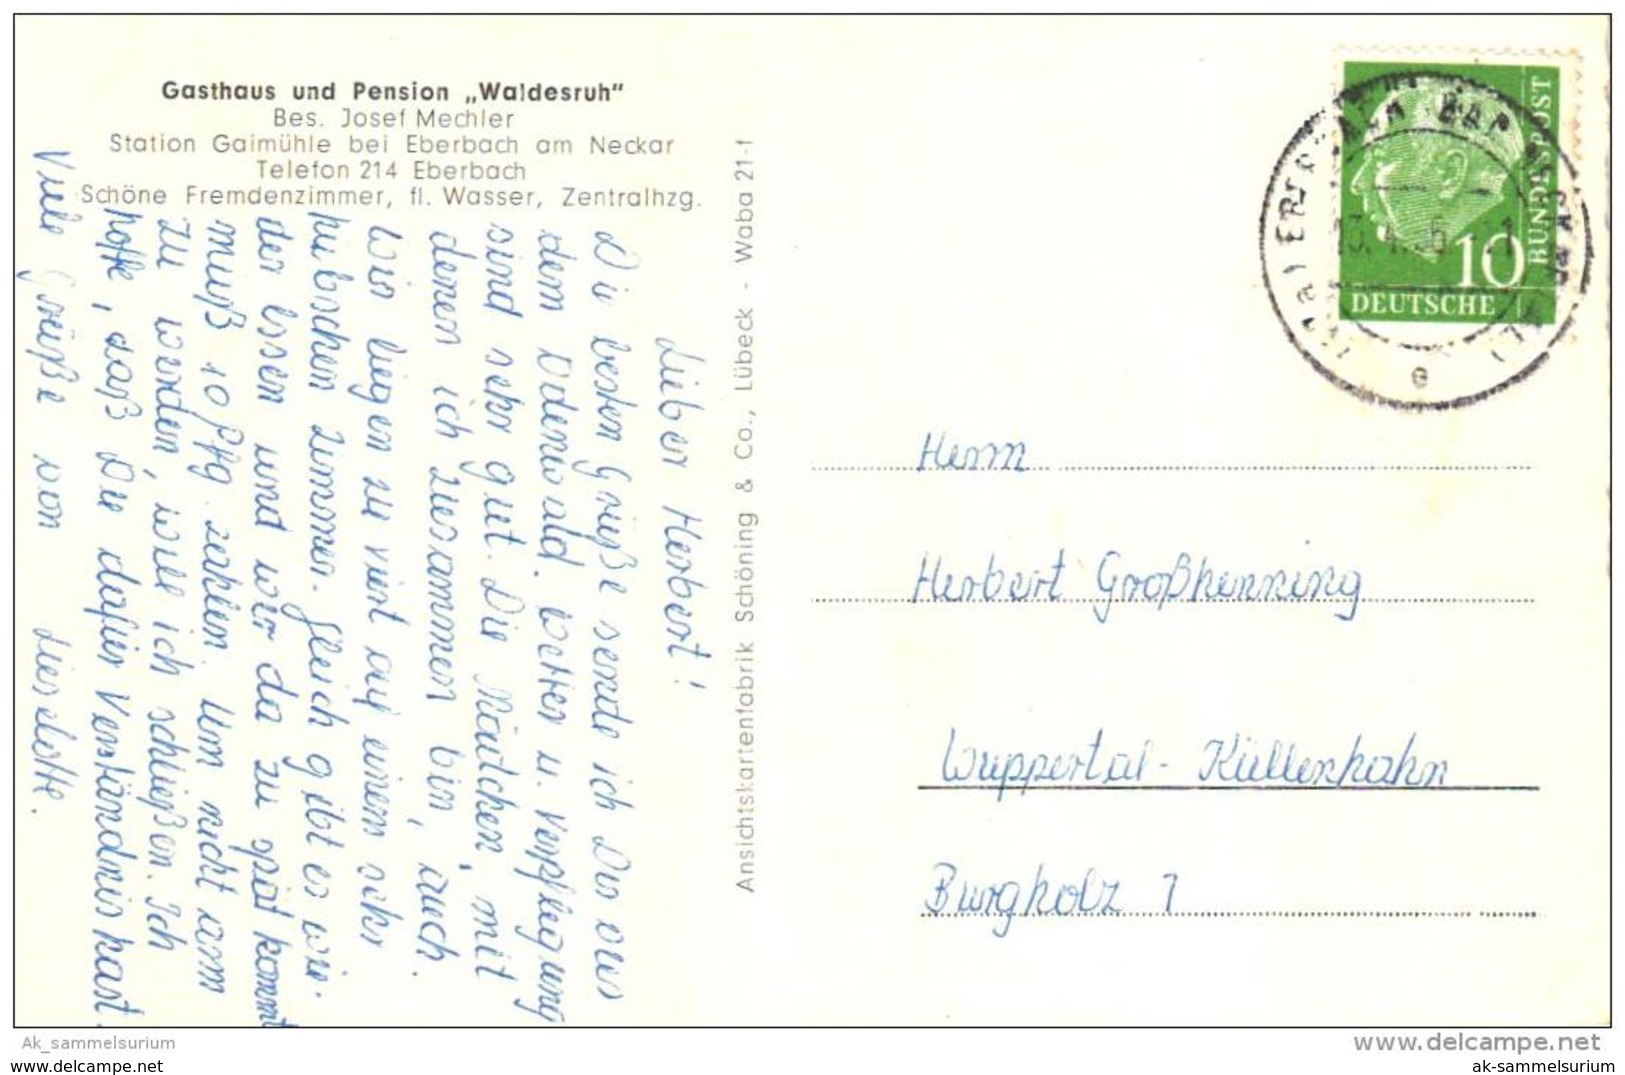 Gasthaus und Pension „Waldesruh"
Bes. Josef Mechler
Station Gaimühle bei Eberbach am Neckar
Telefon 214 Eberbach
Schöne Fremdenzimmer, fl. Wasser, Zentralhzg.
Lieber Herbert!
Die besten Grüße sende ich Dir aus
dem Odenwald. Wetter u. Verpflegung
sind sehr gut. Die Mädchen, mit
denen ich zusammen bin, auch.
Wir liegen zu viert auf einem sehr
hübschen Zimmer. Gleich gibt es wie-
der Essen und wer da zu spät kommt
muß 10 Pfg. zahlen. Um nicht arm
zu werden, will ich schließen. Ich
hoffe, daß Du dafür Verständnis hast.
Viele Grüße von Lieselotte.
Ansichtskartenfabrik Schöning & Co., Lübeck - Waba 21-f
DEUTSCHE
BUNDESPOST
10
e
Herrn
Herbert Großhenning
Wuppertal-Küllenhahn
Burgholz 7
Ak_sammelsurium
www.delcampe.net
ak-sammelsurium
ak-sammelsurium